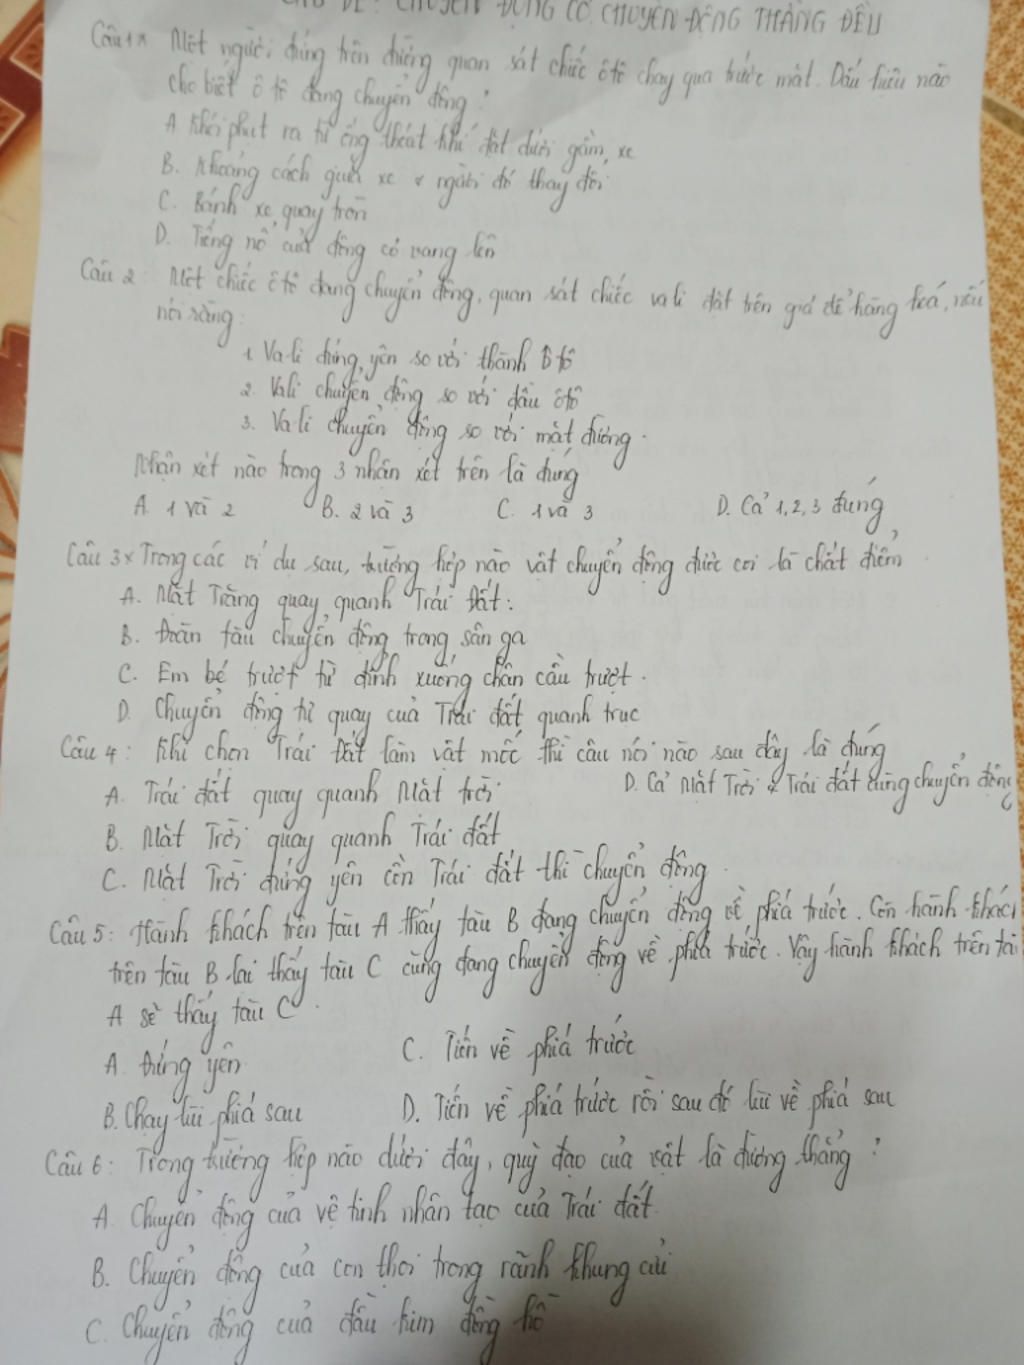 CHỦ ĐỀ: CHUYỂN ĐỘNG CƠ. CHUYỂN ĐỘNG THẲNG ĐỀU
Câu 1* Một người đứng trên đường quan sát chiếc ôtô chạy qua trước mặt. Dấu hiệu nào
cho biết ô tô đang chuyển động?
A Khói phụt ra từ ống thoát khí đặt dưới gầm xe
B. Khoảng cách giữa xe & người đó thay đổi
C. Bánh xe quay tròn
D. Tiếng nổ của động cơ vang lên
Câu 2: Một chiếc ôtô đang chuyển động, quan sát chiếc va li đặt trên giá để hàng hoá, nếu
nói rằng:
1 Va li đứng yên so với thành ôtô
2. Vali chuyển động so với đầu ôtô
3. Va li chuyển động so với mặt đường.
Nhận xét nào trong 3 nhận xét trên là đúng
A. 1 và 2 B. 2 và 3 C. 1 và 3 D. Cả 1, 2, 3 đúng
Câu 3* Trong các ví dụ sau, trường hợp nào vật chuyển động được coi là chất điểm
A. Mặt Trăng quay quanh Trái Đất.
B. Đoàn tàu chuyển động trong sân ga
C. Em bé trượt từ đỉnh xuống chân cầu trượt.
D. Chuyển động tự quay của Trái đất quanh trục
Câu 4: Khi chọn Trái Đất làm vật mốc thì câu nói nào sau đây là đúng
A. Trái đất quay quanh Mặt trời D. Cả Mặt Trời & Trái đất cùng chuyển động
B. Mặt Trời quay quanh Trái đất
C. Mặt Trời đứng yên còn Trái đất thì chuyển động
Câu 5: Hành khách trên tàu A thấy tàu B đang chuyển động về phía trước. Còn hành khách
trên tàu B lại thấy tàu C cũng đang chuyển động về phía trước. Vậy hành khách trên tàu
A sẽ thấy tàu C.
A. Đứng yên C. Tiến về phía trước
B. Chạy lùi phía sau D. Tiến về phía trước rồi sau đó lùi về phía sau
Câu 6: Trong trường hợp nào dưới đây, quỹ đạo của vật là đường thẳng?
A. Chuyển động của vệ tinh nhân tạo của Trái đất
B. Chuyển động của con thoi trong rãnh khung cửi
C. Chuyển động của đầu kim đồng hồ